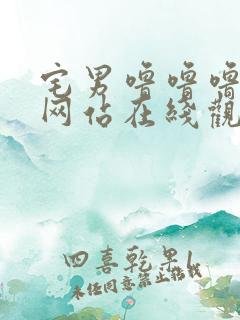 宅男噜噜噜
网站在线观
四喜乾果l
未经同意禁止转载